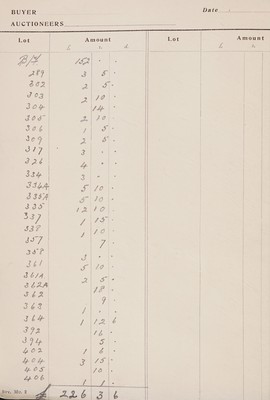 BUYER
Date
AUCTIONEERS
Lot Amount Lot Amount
£ s. d. £ s. d.
B/F 152 - -
289 3 5 -
302 2 5 -
303 2 10 -
304 14 -
305 2 10 -
306 1 5 -
309 2 5 -
317 3 - -
326 4 - -
334 3 - -
334A 5 10 -
335A 5 10 -
335 12 10 -
337 1 15 -
338 1 10 -
357 7 -
358 3 - -
361 5 10 -
361A 2 5 -
362A 18 -
362 9 -
363 1 - -
364 1 12 6
392 16 -
394 5 -
402 1 6 -
404 3 15 -
405 10 -
406 1 1 -
£ 226 3 6